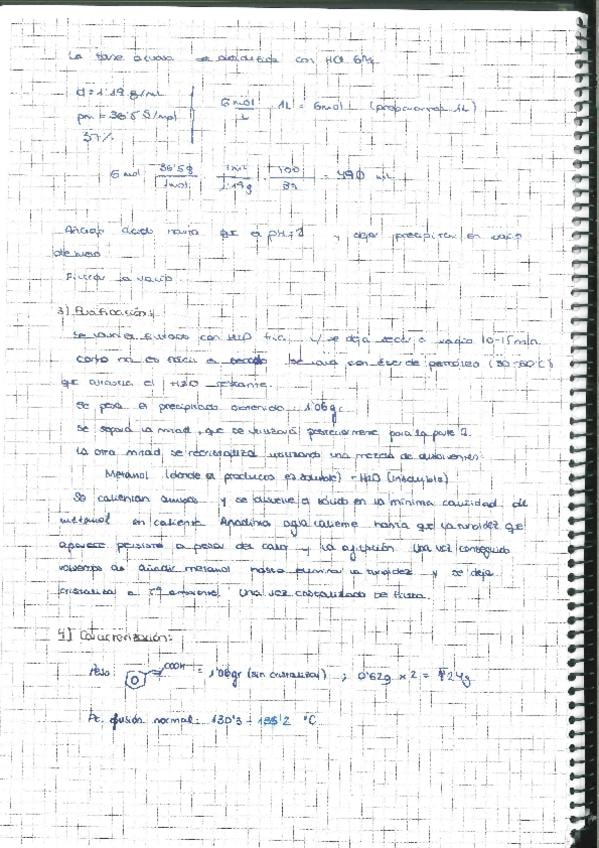 La fase acuosa se acidifica con HCl 6M.
d = 1'19 g/mL
pm = 36'5 g/mol
37%
6 mol/L · 1L = 6 mol (preparamos 1L)
6 mol · 36'5g/1mol · 1mL/1'19g · 100/ = 490 mL
Añadir ácido hasta que el pH y dejar precipitar en
de hielo
Filtrar la vacío.
3) Purificación:
Se lava el filtrado con H2O fría y se deja secar a vacío 10-15 min.
como no es fácil el secado se lava con éter de petróleo
que arrastra el H2O restante.
Se pesa el precipitado obtenido 1'06g
Se separa la mitad, que se utilizará posteriormente para la parte 2.
La otra mitad se recristaliza utilizando una mezcla de disolventes:
Metanol (donde el producto es soluble) - H2O (insoluble)
Se calientan ambos y se disuelve el sólido en la mínima cantidad de
metanol en caliente. Añadimos agua caliente hasta que la turbidez que
aparece persista a pesar del calor y la agitación. Una vez conseguido
volvemos a añadir metanol hasta eliminar la turbidez y se deja
cristalizar a tª ambiente. Una vez cristalizado se filtra.
4) Caracterización:
Peso: COOH = 1'06gr (sin cristalizar) ; 0'62g x 2 = 1'24g
Pt. fusión normal: 130'3 - 135'2 °C